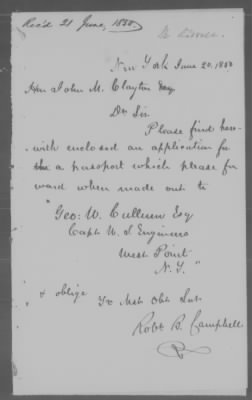 Rec'd 21 June, 1850.
New York June 20. 1850
Hon John M. Clayton Esq
Dr Sir.
Please find here-
with enclosed an application for
a passport which please for
ward when made out to
"Geo: W. Cullum Esq
Capt U. S Engineers
West Point
N. Y. "
& oblige Yr Mst Obt Svt.
Robt B. Campbell